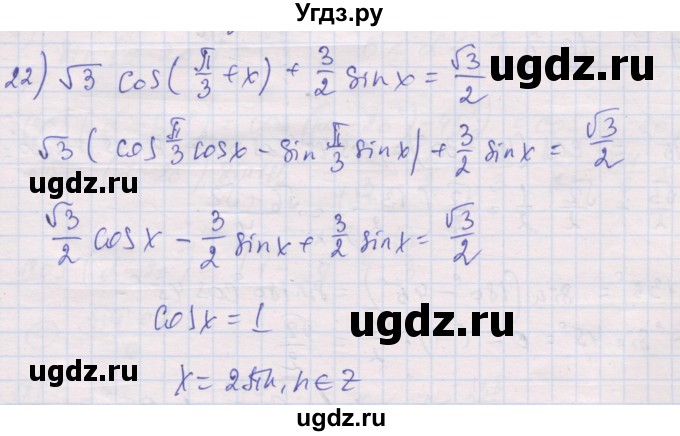 Угдз.ру
22) √3 cos(π/3 + x) + 3/2 sin x = √3/2
ugdz.ru
√3 (cos π/3 cos x − sin π/3 sin x) + 3/2 sin x = √3/2
ugdz.ru
ugdz.ru
√3/2 cos x − 3/2 sin x + 3/2 sin x = √3/2
ugdz.ru
cos x = 1
ugdz.ru
ugdz.ru
x = 2πn, n ∈ Z
ugdz.ru